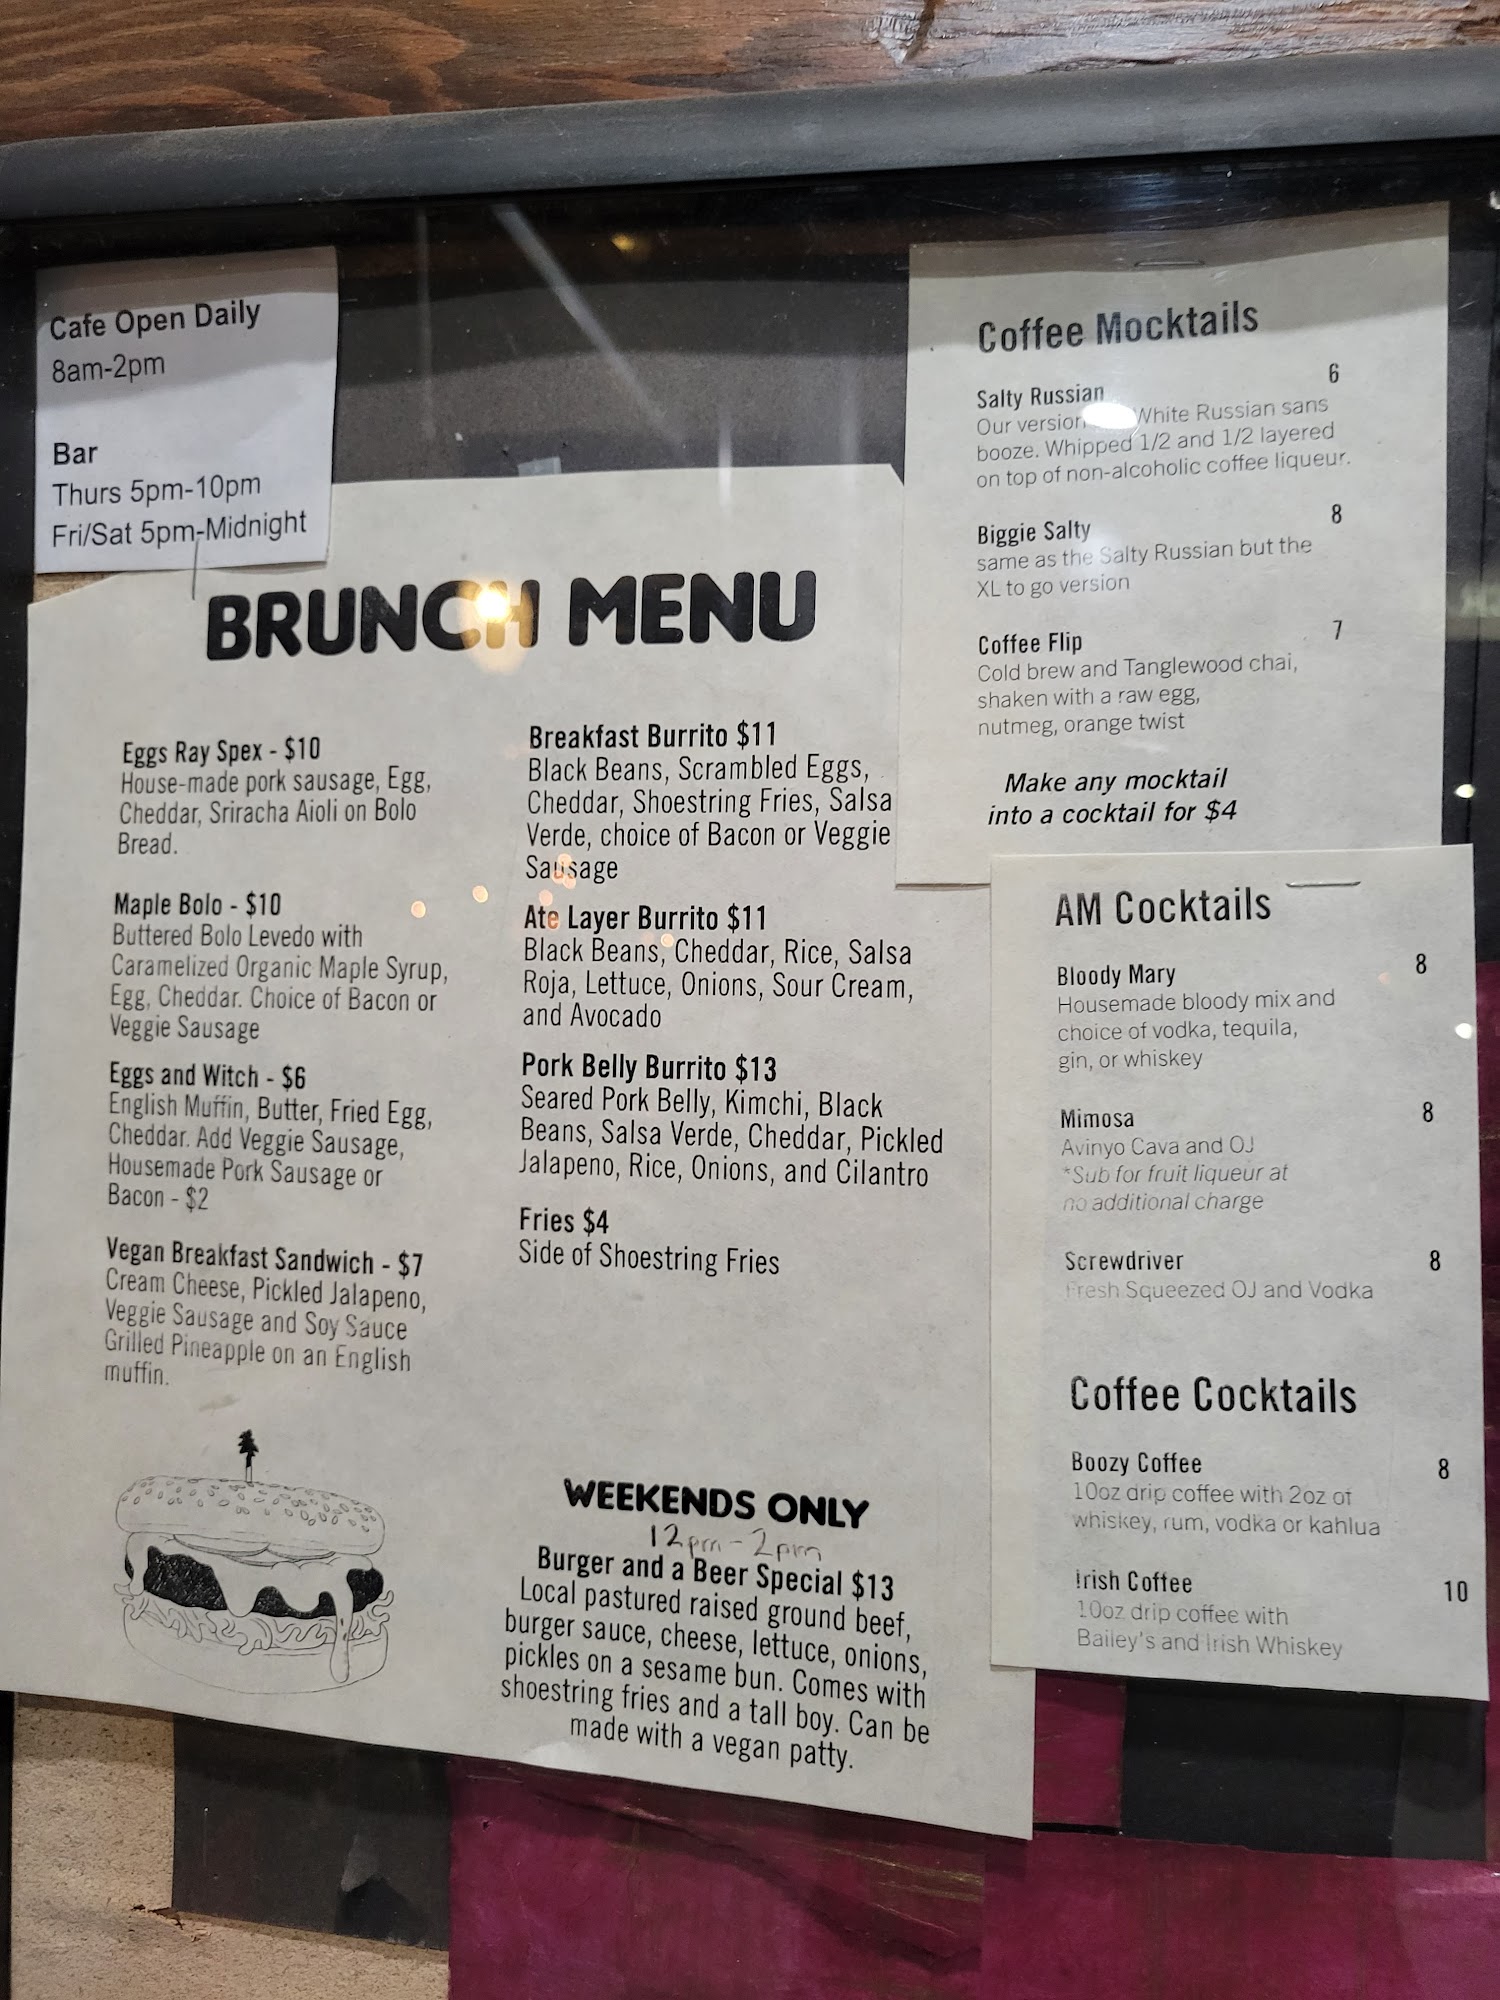 Cafe Open Daily
8am-2pm
Bar
Thurs 5pm-10pm
Fri/Sat 5pm-Midnight
BRUNCH MENU
Eggs Ray Spex - $10
House-made pork sausage, Egg,
Cheddar, Sriracha Aioli on Bolo
Bread.
Maple Bolo - $10
Buttered Bolo Levedo with
Caramelized Organic Maple Syrup,
Egg, Cheddar. Choice of Bacon or
Veggie Sausage
Eggs and Witch - $6
English Muffin, Butter, Fried Egg,
Cheddar. Add Veggie Sausage,
Housemade Pork Sausage or
Bacon - $2
Vegan Breakfast Sandwich - $7
Cream Cheese, Pickled Jalapeno,
Veggie Sausage and Soy Sauce
Grilled Pineapple on an English
muffin.
Breakfast Burrito $11
Black Beans, Scrambled Eggs,
Cheddar, Shoestring Fries, Salsa
Verde, choice of Bacon or Veggie
Sausage
Ate Layer Burrito $11
Black Beans, Cheddar, Rice, Salsa
Roja, Lettuce, Onions, Sour Cream,
and Avocado
Pork Belly Burrito $13
Seared Pork Belly, Kimchi, Black
Beans, Salsa Verde, Cheddar, Pickled
Jalapeno, Rice, Onions, and Cilantro
Fries $4
Side of Shoestring Fries
WEEKENDS ONLY
12pm-2pm
Burger and a Beer Special $13
Local pastured raised ground beef,
burger sauce, cheese, lettuce, onions,
pickles on a sesame bun. Comes with
shoestring fries and a tall boy. Can be
made with a vegan patty.
Coffee Mocktails
Salty Russian 6
Our version White Russian sans
booze. Whipped 1/2 and 1/2 layered
on top of non-alcoholic coffee liqueur.
Biggie Salty 8
same as the Salty Russian but the
XL to go version
Coffee Flip 7
Cold brew and Tanglewood chai,
shaken with a raw egg,
nutmeg, orange twist
Make any mocktail
into a cocktail for $4
AM Cocktails
Bloody Mary 8
Housemade bloody mix and
choice of vodka, tequila,
gin, or whiskey
Mimosa 8
Avinyo Cava and OJ
*Sub for fruit liqueur at
no additional charge
Screwdriver 8
Fresh Squeezed OJ and Vodka
Coffee Cocktails
Boozy Coffee 8
10oz drip coffee with 2oz of
whiskey, rum, vodka or kahlua
Irish Coffee 10
10oz drip coffee with
Bailey's and Irish Whiskey